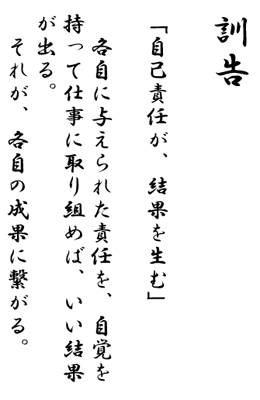 訓告
「自己責任が、結果を生む」
　各自に与えられた責任を、自覚を
持って仕事に取り組めば、いい結果
が出る。
　それが、各自の成果に繋がる。